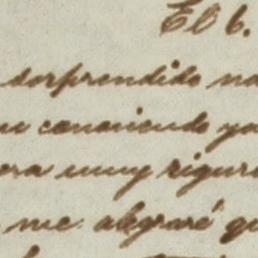 El 6.
sorprendido no
conociendo ya
era muy rigur
me alegraré qu